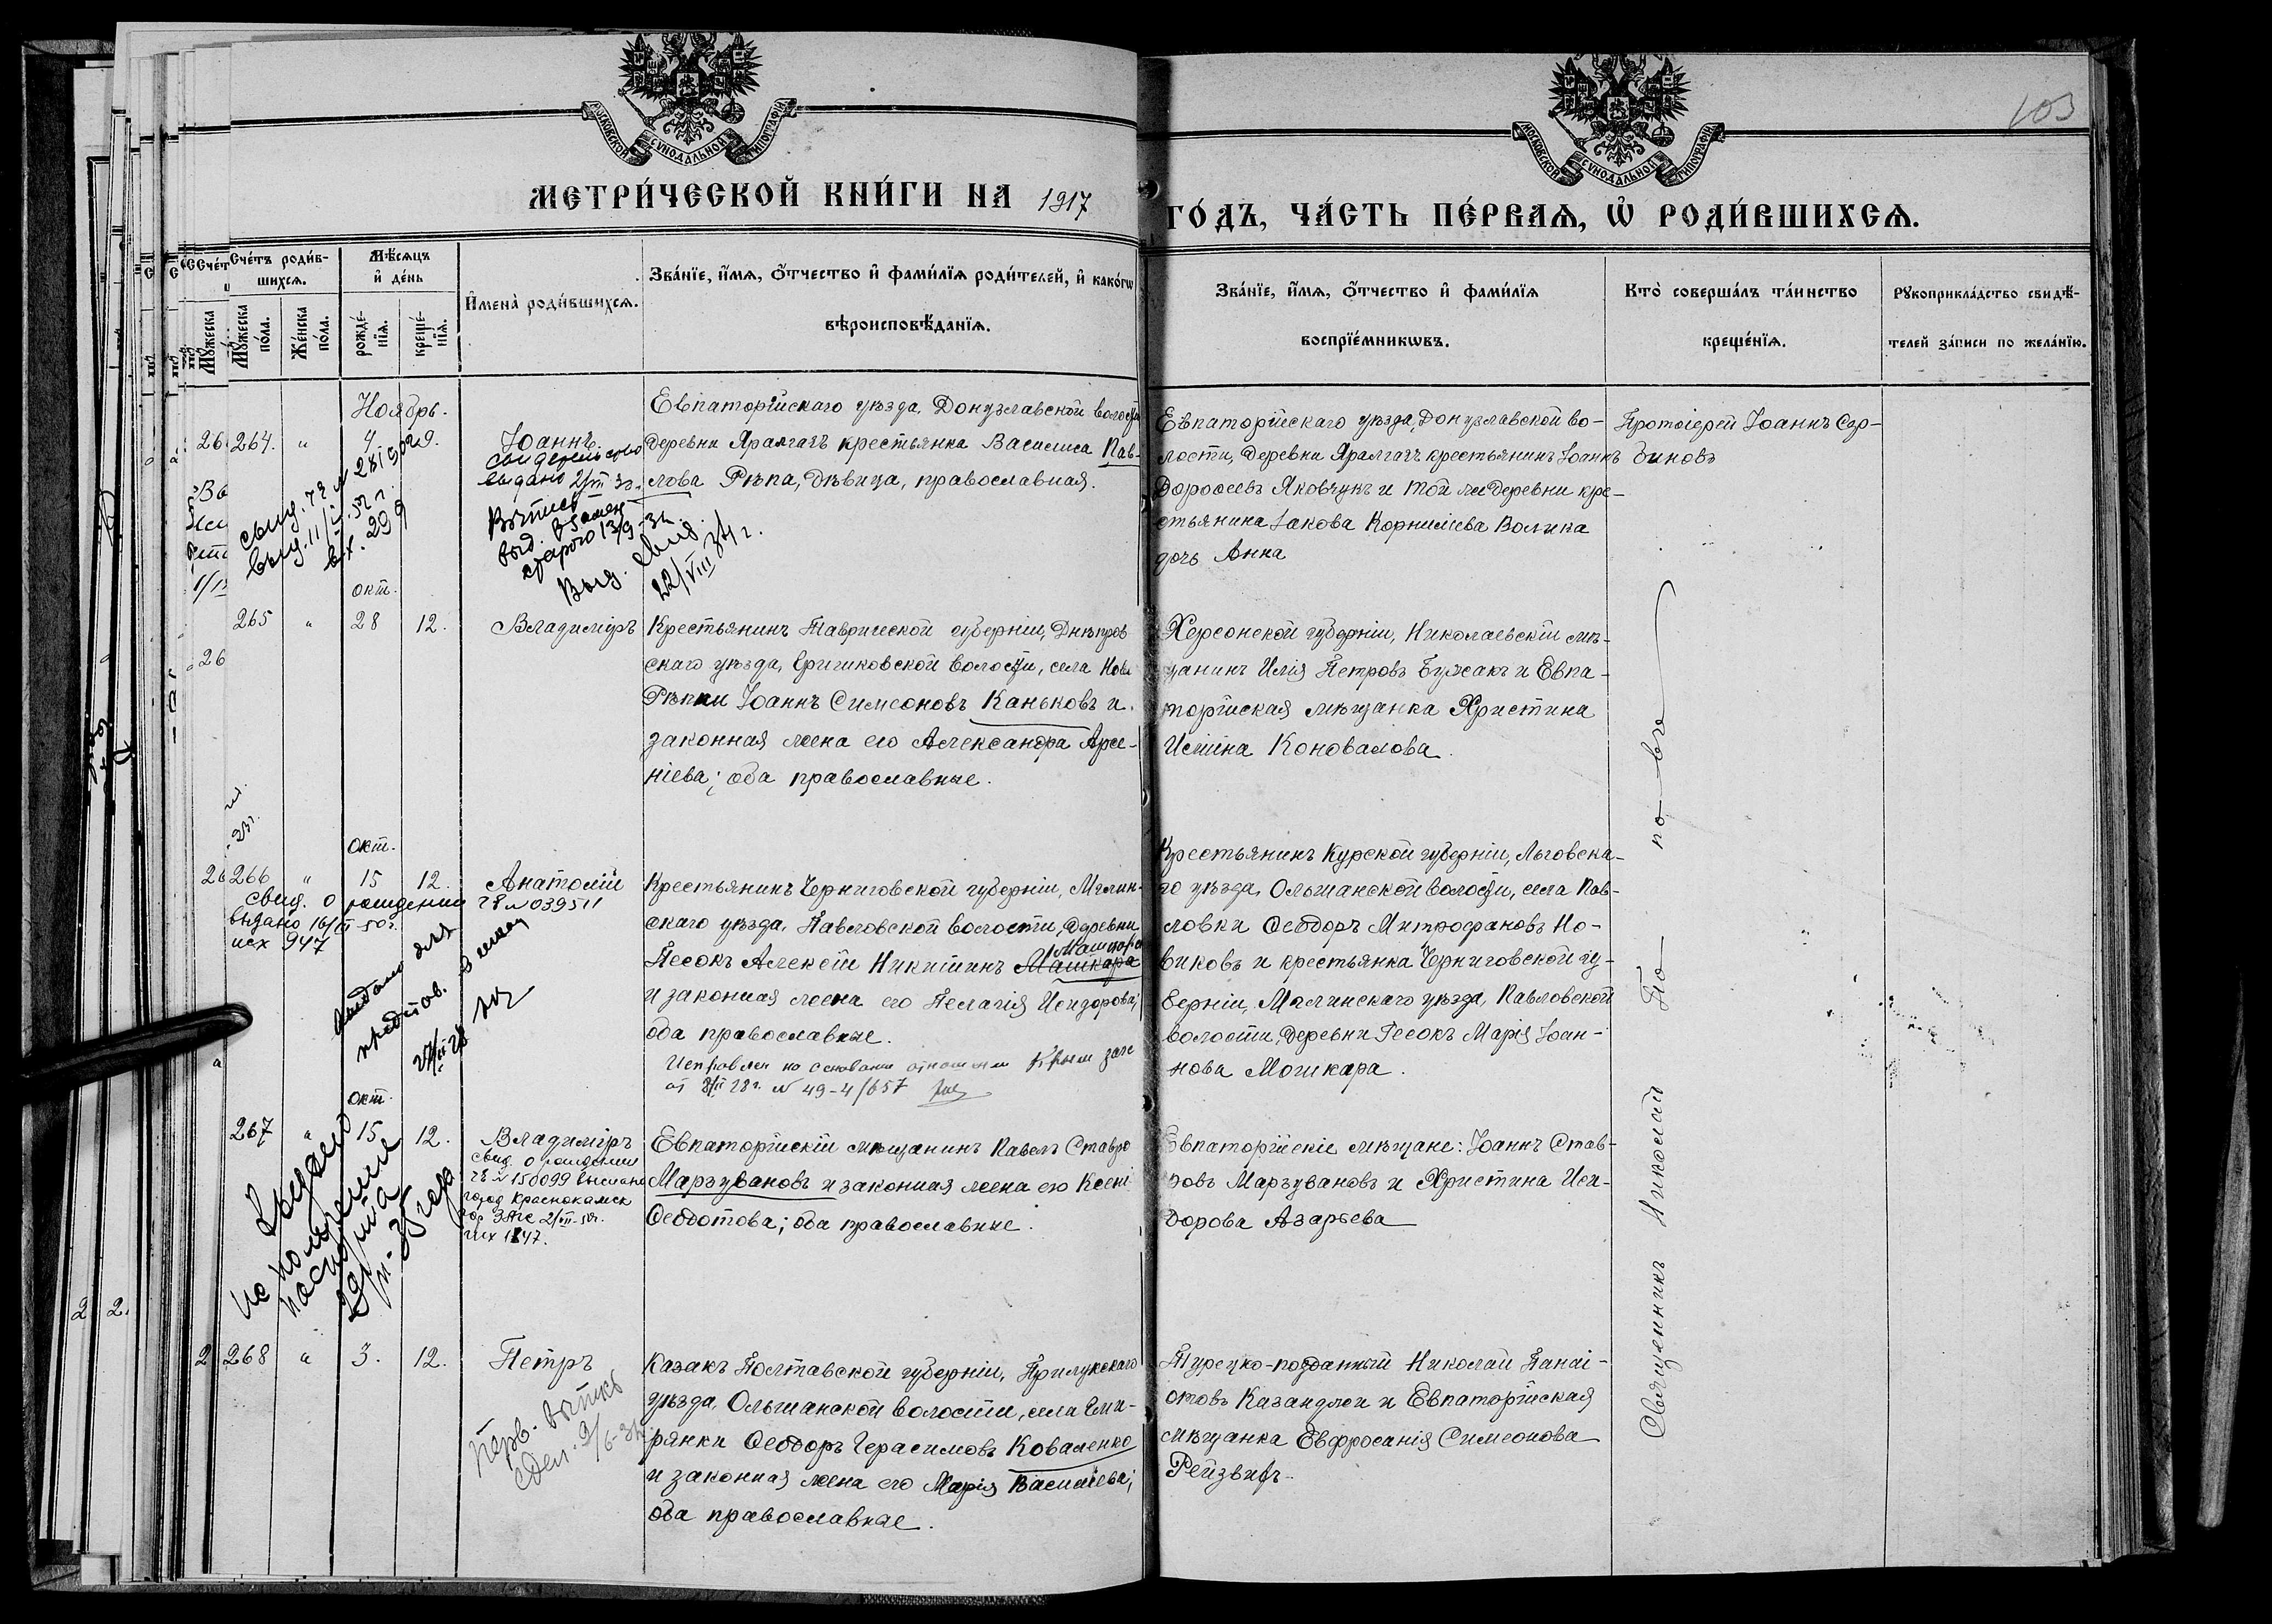 103
МОСКОВСКОЙ СѴНОДАЛЬНОЙ ТИПОГРАФІИ
МОСКОВСКОЙ СѴНОДАЛЬНОЙ ТИПОГРАФІИ
МЕТРИ́ЧЕСКОЙ КНИ́ГИ НА 1917
ГО́ДЪ, ЧА́СТЬ ПЕ́РВАѦ, Ѡ҆ РОДИ́ВШИХСѦ.
Сче́тъ роди́в-
шихсѧ.
Мꙋ́жеска
по́ла.
Же́нска
по́ла.
Мѣ́сѧцъ
и҆ де́нь
рожде́-
нїѧ.
креще́-
нїѧ.
И҆мена̀ роди́вшихсѧ.
Зва́нїе, и҆́мѧ, ѻ҆́тчество и҆ фами́лїѧ роди́телей, и҆ како́гѡ
вѣроисповѣ́данїѧ.
Зва́нїе, и҆́мѧ, ѻ҆́тчество и҆ фами́лїѧ
воспрїе́мникѡвъ.
Кто̀ соверша́лъ та́инство
креще́нїѧ.
Рꙋкоприкла́дство свидѣ́-
телей за́писи по жела́нїю.
Ноябрь.
264. " 4. 9.
Іоаннъ
свидетельство
выдано
Выпись
выд. взамен
старого 13/9-34
Выд. свид.
22/VIII 34 г.
Евпаторійскаго уѣзда, Донузлавской волости
деревни Яралгачъ крестьянка Василиса Пав-
лова Рѣпа, дѣвица, православная.
Евпаторійскаго уѣзда, Донузлавской во-
лости, деревни Яралгачъ крестьянинъ Іоаннъ
Дороѳеевъ Яковчукъ и той же деревни кре-
стьянина Іакова Корниліева Волика
дочь Анна
Протоіерей Іоаннъ Сер-
биновъ
окт.
265 " 28 12.
Владиміръ
Крестьянинъ Таврической губерніи, Днѣпров
скаго уѣзда, волости, села Ново
Рѣпки Іоаннъ Симеоновъ Каньковъ и
законная жена его Александра Арсе-
ніева; оба православные.
Херсонской губерніи, Николаевскій мѣ-
щанинъ Илія Петровъ Бужакъ и Евпа-
торійская мѣщанка Христина
Коновалова.
окт.
266 " 15 12.
Анатолій
свид. о рождении № 039511
выдано 50г.
исх 947
Крестьянинъ Черниговской губерніи, Мглин-
скаго уѣзда, Павловской волости, деревни
Песокъ Алексѣй Никитинъ Машкара
и законная жена его Пелагія Исидорова;
оба православные.
Исправлен на основании отношения Крым загс
от 28 г. № 49-4/657
Крестьянинъ Курской губерніи, Льговска-
го уѣзда, Ольшанской волости, села Пав-
ловки Ѳеодоръ Митрофановъ Но-
виковъ и крестьянка Черниговской гу-
берніи, Мглинскаго уѣзда, Павловской
волости, деревни Песокъ Марія Іоан-
нова Мошкара.
окт.
267 " 15 12.
Владиміръ
свид. о рождении
№ 150099 выслано
город Краснокамск
исх 1847.
Выдано
на получение
паспорта
Евпаторійскій мѣщанинъ Павелъ Ставро
Марзувановъ и законная жена его Ксені
Ѳеодотова; оба православные.
Евпаторійскіе мѣщане: Іоаннъ Став-
ровъ Марзувановъ и Христина Иси-
дорова Азарьева
268 " 3. 12.
Петръ
перв. выпись
сдел. 9/6-34
Казакъ Полтавской губерніи, Прилукскаго
уѣзда, Ольшанской волости, села Еми-
рянки Ѳеодоръ Герасимовъ Коваленко
и законная жена его Марія Василіева;
оба православные.
Турецко-подданный Николай Панаі-
отовъ Казанджи и Евпаторійская
мѣщанка Евфросанія Симеонова
Священникъ Николай